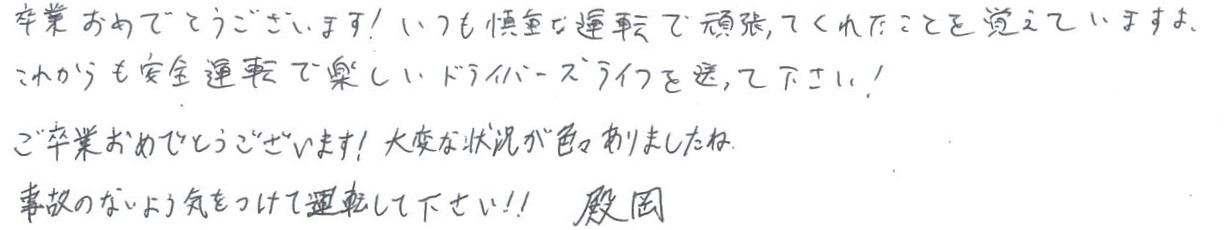 卒業おめでとうございます！いつも慎重な運転で頑張ってくれたことを覚えていますよ。
これからも安全運転で楽しいドライバーズライフを送って下さい！
ご卒業おめでとうございます！大変な状況が色々ありましたね。
事故のないよう気をつけて運転して下さい！！ 殿岡